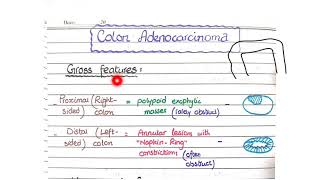 Date: 20
Colon Adenocarcinoma
Gross features:
→ Proximal (Right- = polypoid exophytic
sided) colon masses (rarely obstruct)
→ Distal (Left- = Annular lesion with
sided) colon "Napkin-Ring"
constriction (often
obstruct)